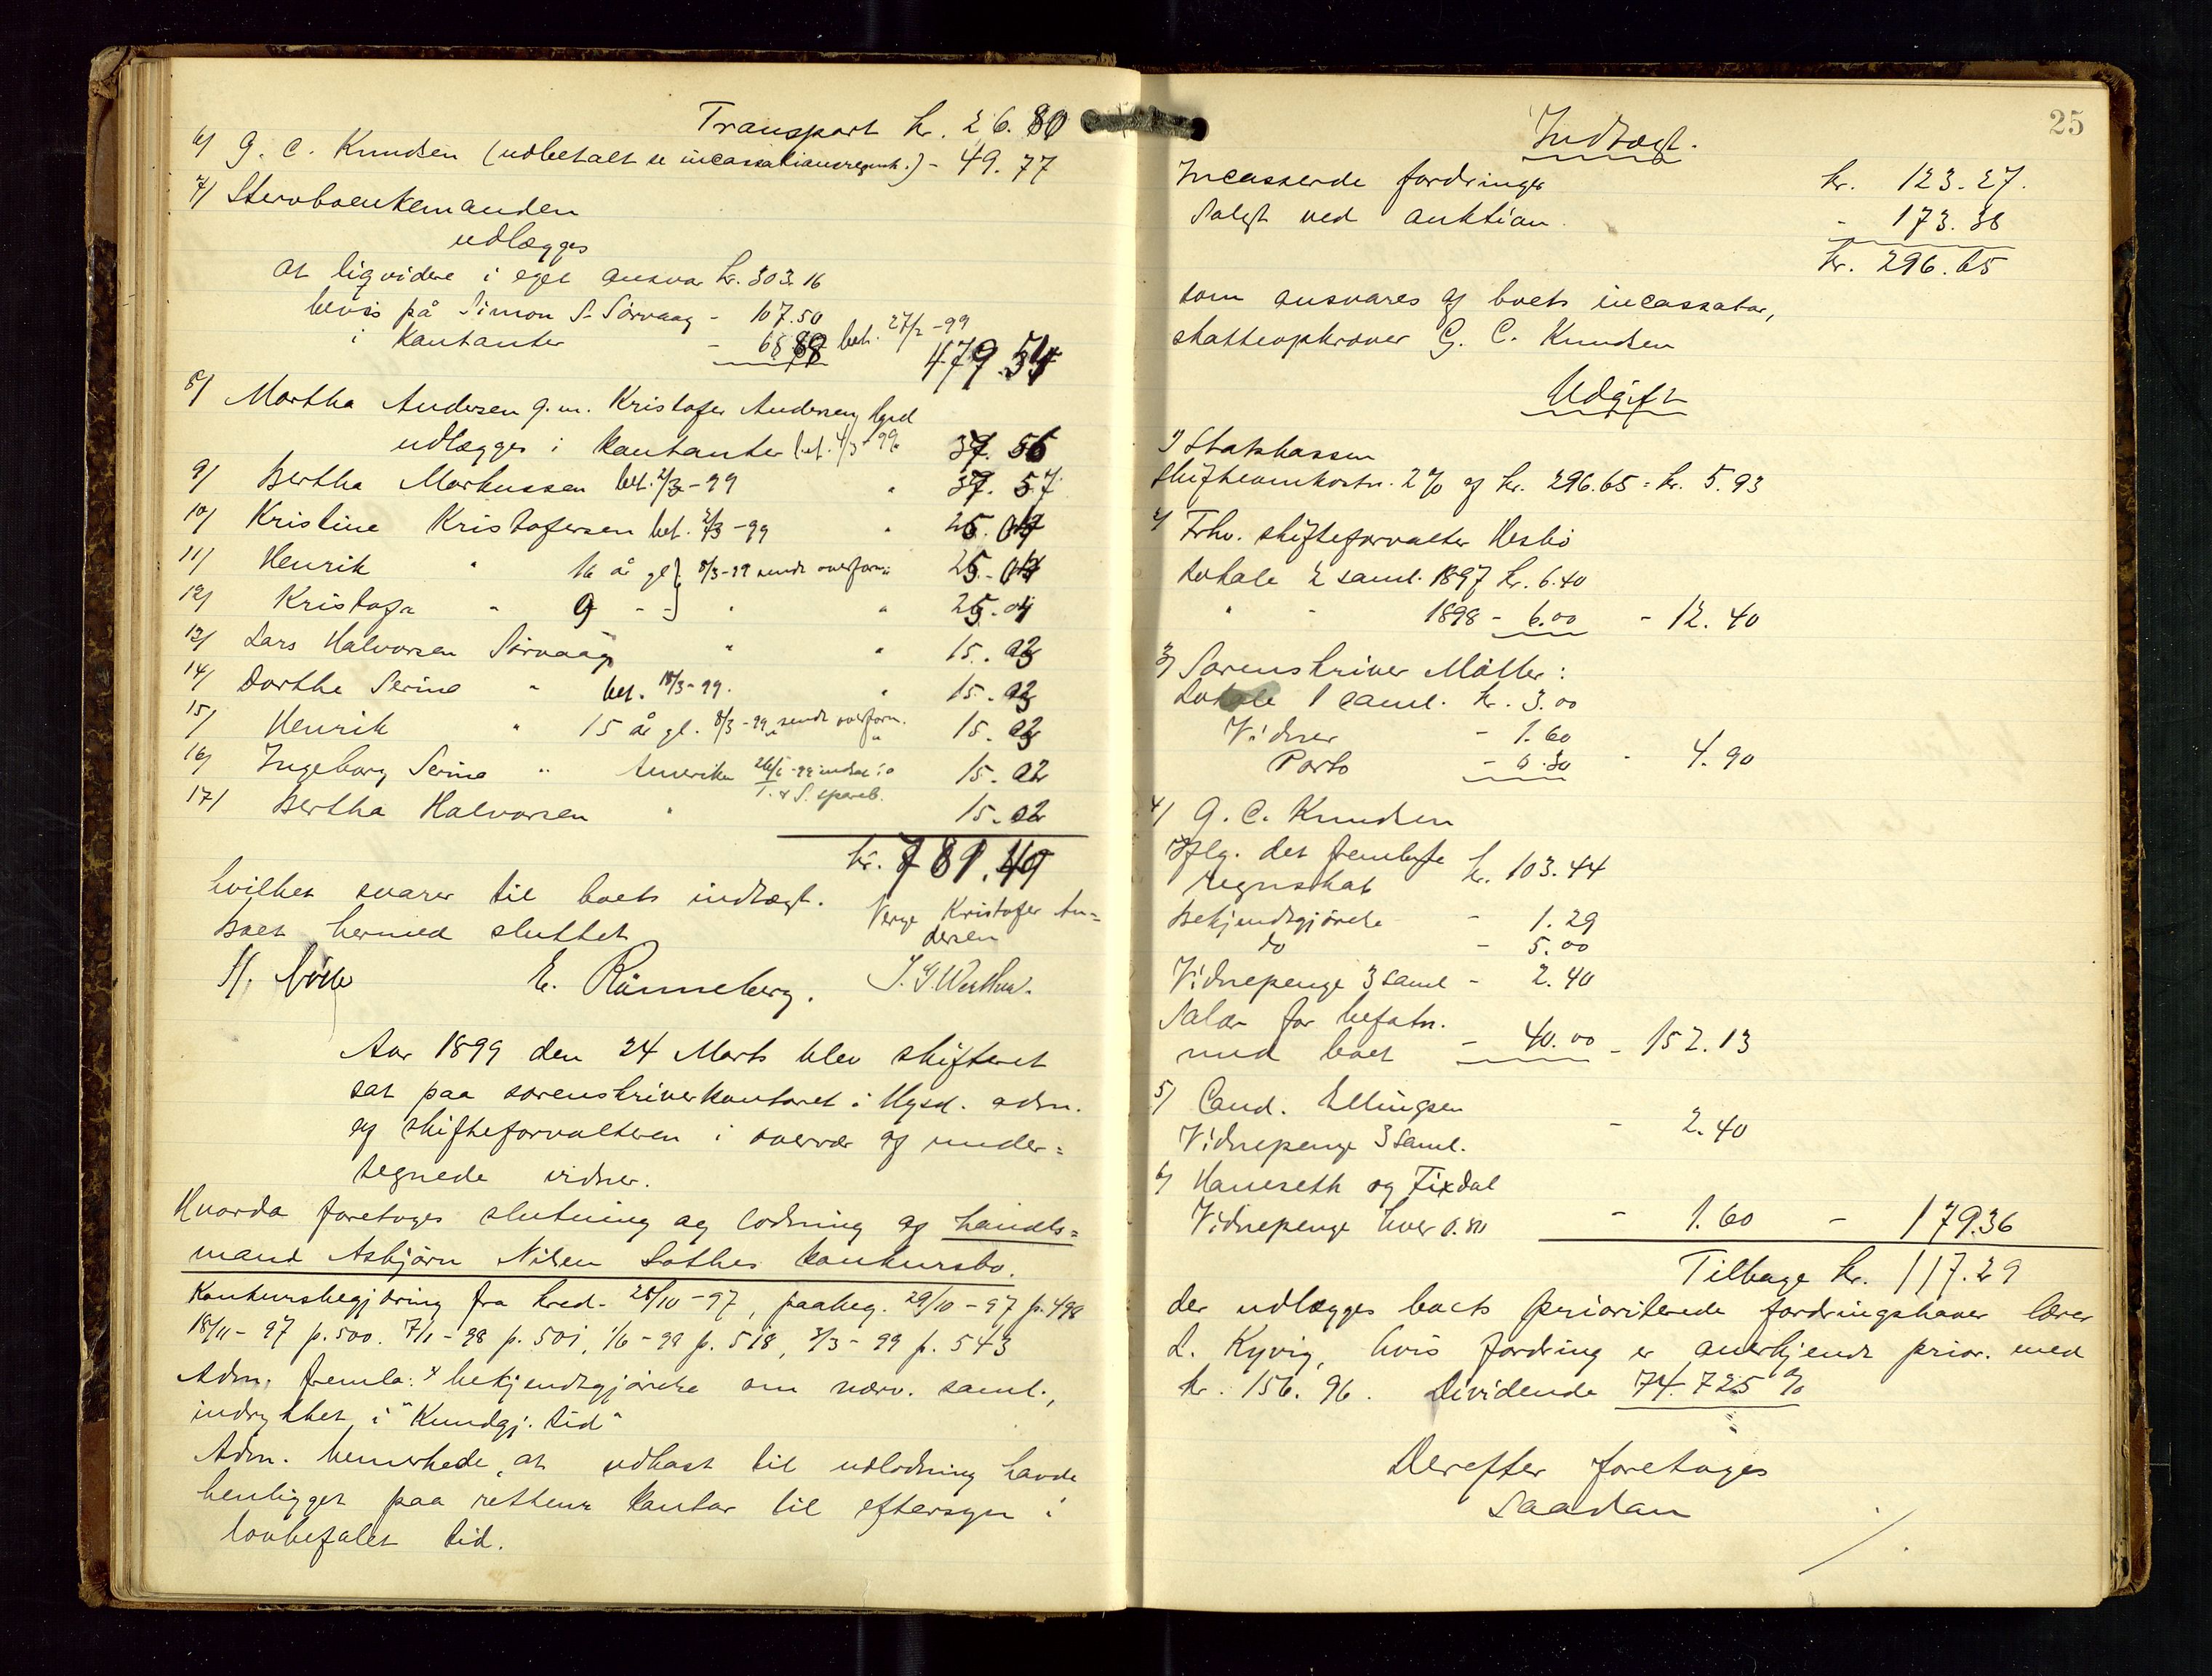 Transport kr. 26.80
6/ G. C. Knudsen (udbetalt se incassationsregnsk.) - 49.77
7/ Stervboenkemanden
udlægges
at liqvidere i eget ansvar kr. 303.16
bevis på Simon S. Sörvaag - 107.50
i kontanter - 68.88 bet. 27/2 -99
479.54
8/ Martha Andersen g. m. Kristofer Andersen, Hgsd
udlægges i kontanter bet. 4/3 - 99. 37.56
9/ Bertha Markussen bet. 2/3 -99 " 37.57
10/ Kristine Kristofersen bet. 2/3 -99 " 25.04
11/ Henrik " 16 år gl } 8/3 -99 sendt overform. 25.04
12/ Kristofa " 9 - - } " " 25.04
13/ Lars Halvorsen Sörvaag " " 15.02
14/ Dorthe Serine " bet. 18/3 - 99. " 15.02
15/ Henrik " 15 år gl. 8/3 -99 sendt overform. 15.02
16/ Ingeborg Serine " Amerika -99 indsat i 15.02
T. & S. spareb.
17/ Bertha Halvorsen " 15.02
kr. 789.49
hvilket svarer til boets indtægt.
Boet hermed sluttet
Verge Kristofer An=
dersen
E. Rönneberg.
Aar 1899 den 24 Marts blev skifteret
sat paa sorenskriverkontoret i Hgsd. adm.
af skifteforvalteren i overvær af under=
tegnede vidner.
Hvorda foretoges slutning og lodning af handels=
mand Asbjörn Nilsen Lothes konkursbo.
Konkursbegjæring fra kred. 28/10 -97, paabeg. 29/10 -97 p. 498
18/11 - 97 p. 500. 7/1 - 98 p. 501, 1/6 - 98 p. 518, 3/3 - 99 p. 543
Adm. fremla: bekjendtgjörelse om nærv. saml.,
indrykket i "Kundgj. tid"
Adm. bemerkede, at udkast til udlodning havde
henligget paa rettens kontor til eftersyn i
lovbefalet tid.
25
Indtægt.
Incasserede fordringer kr. 123.27.
Solgt ved auktion - 173.38
kr. 296.65
som ansvares af boets incassator,
skatteopkræver G. C. Knudsen
Udgift
1/ Statskassen
Skifteomkostn. 2% af kr. 296.65 = kr. 5.93
2/ Frhv. skifteforvalter Hesbö
Lokale 2 saml. 1897 kr. 6.40
" - 1898 - 6.00 - 12.40
3/ Sorenskriver Möller:
Lokale 1 saml. kr. 3.00
Vidner - 1.60
Porto - 0.30 - 4.90
4/ G. C. Knudsen
Iflg. det fremlagte
regnskab kr. 103.44
Bekjendtgjörelse - 1.29
do - 5.00
Vidnepenge 3 saml - 2.40
Salær for befatn.
med boet - 40.00 - 152.13
5/ Cand. Ellingsen
Vidnepenge 3 saml. - 2.40
6/ Hanseth og Fixdal
Vidnepenge hver 0.80 - 1.60 - 179.36
Tilbage kr. 117.29
der udlægges boets prioriterede fordringshaver lærer
L. Kyvig, hvis fordring er anerkjendt prior. med
kr. 156.96. Dividende 74.725 %
Derefter foretoges
Saadan